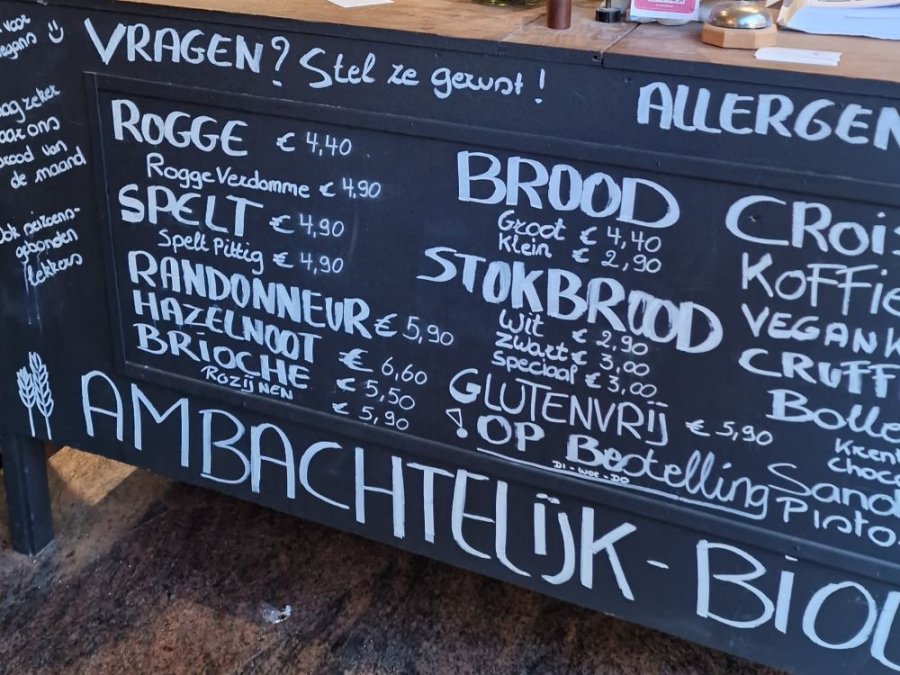 voor
vegans
VRAGEN? Stel ze gerust!
ALLERGEN
zeker
ons
brood van
de maand
Ook seizoens-
gebonden
lekkers
ROGGE € 4,40
Rogge Verdomme € 4,90
SPELT € 4,90
Spelt Pittig € 4,90
RANDONNEUR € 5,90
HAZELNOOT € 6,60
BRIOCHE € 5,50
Rozijnen € 5,90
BROOD
Groot € 4,40
Klein € 2,90
STOKBROOD
Wit € 2,90
Zwart € 3,00
Speciaal € 3,00
GLUTENVRIJ € 5,90
! OP Bestelling
DI-WOE-DO
CROIS
KOFFIE
VEGAN K
CRUFF
Bolle
Krent
Choco
Sand
Pisto
AMBACHTELIJK - BIOL